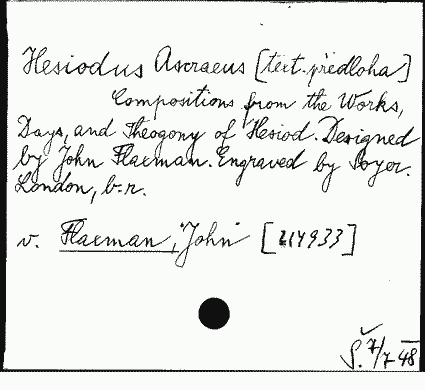 Hesiodus Ascraeus [text. předloha]
Compositions from the Works,
Days, and Theogony of Hesiod. Designed
by John Flaxman. Engraved by Soyer.
London, b.r.
v. Flaxman, John [214933]
S. 7/7 48